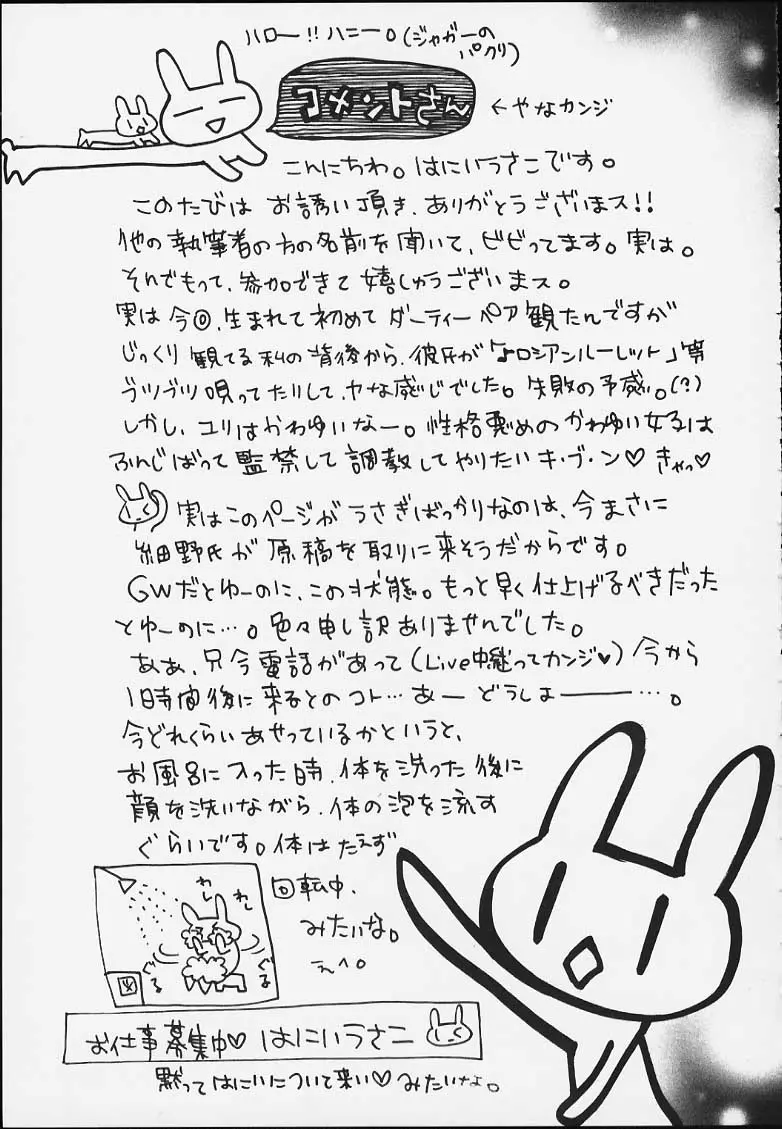 ハロー!!ハニー。(ジャガーの
パクリ)
コメントさん
←やなカンジ
こんにちわ。はにいうさこです。
このたびは お誘い頂き、ありがとうございまス!!
他の執筆者の方の名前を聞いて、ビビってます。実は。
それでもって、参加できて嬉しゅうございまス。
実は今回、生まれて初めてダーティーペア観たんですが
じっくり観てる私の背後から、彼氏が「ロシアンルーレット」等
ブツブツ唄ってたりして、ヤな感じでした。失敗の予感。(?)
しかし、ユリはかわゆいなー。性格悪めのかわゆい女子は
ふんじばって監禁して調教してやりたいキ・ブ・ン♡きゃっ♡
実はこのページがうさぎばっかりなのは、今まさに
細野氏が原稿を取りに来そうだからです。
GWだとゆーのに、この状態。もっと早く仕上げるべきだった
とゆーのに…。色々申し訳ありませんでした。
ああ、只今電話があって(Live中継ってカンジ♥)今から
1時間後に来るとのコト…あー どうしよ――…。
今どれくらいあせっているかというと、
お風呂に入った時、体を洗った後に
顔を洗いながら、体の泡を流す
ぐらいです。体はたえず
回転中、
みたいな。
えへ。
わし
わし
ぐる
ぐる
お仕事募集中♡ はにいうさこ
黙ってはにいについて来い♡みたいな。